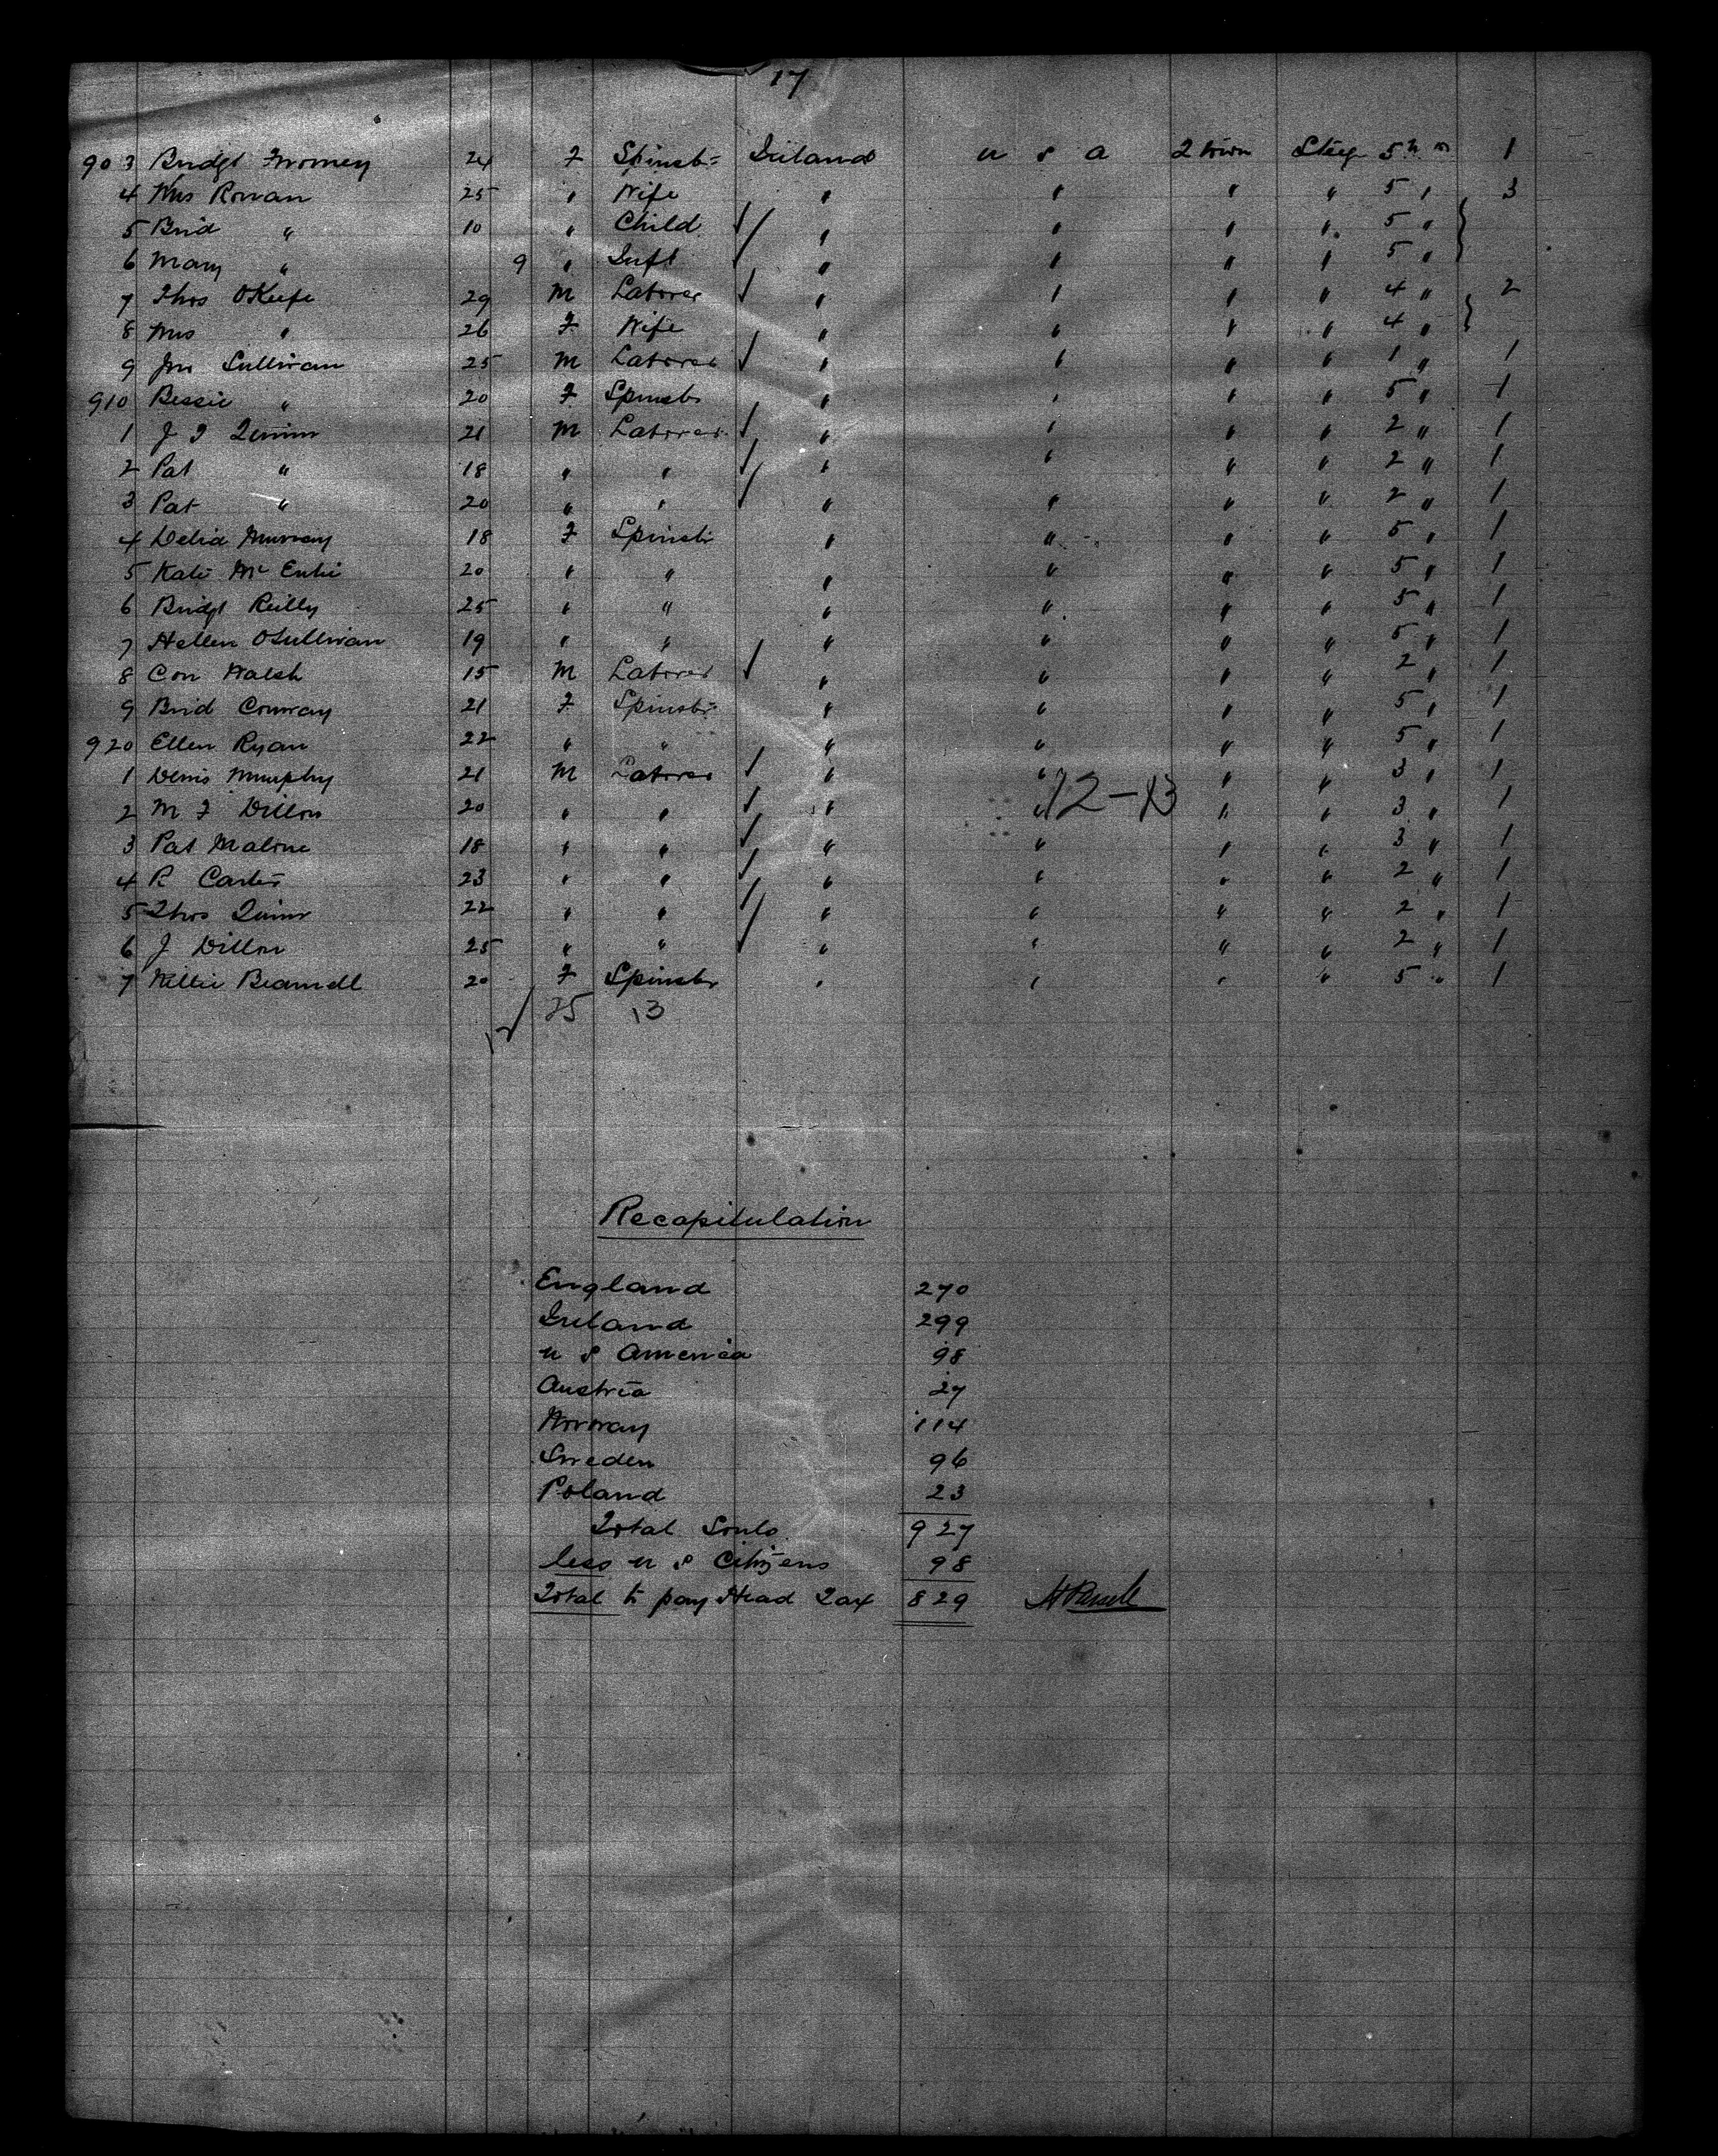 17
903 Bridgt Twomey 24 F Spinstr Ireland U S A 2 town Steerage 5 " " 1
4 Mrs Rowan 25 " Wife " " " " 5 " 3
5 Brid " 10 " Child " " " " 5 "
6 Mary " 9 " Inft " " " " 5 "
7 Thos OKeefe 29 M Laborer " " " " 4 " 2
8 Mrs " 26 F Wife " " " " 4 "
9 Jno Sullivan 25 M Laborer " " " " 1 " 1
910 Bessie " 20 F Spinstr " " " " 5 " 1
1 J F Quinn 21 M Laborer " " " " 2 " 1
2 Pat " 18 " " " " " " 2 " 1
3 Pat " 20 " " " " " " 2 " 1
4 Delia Murray 18 F Spinstr " " " " 5 " 1
5 Kate Mc Entee 20 " " " " " " 5 " 1
6 Bridgt Reilly 25 " " " " " " 5 " 1
7 Hellen OSullivan 19 " " " " " " 5 " 1
8 Con Walsh 15 M Laborer " " " " 2 " 1
9 Brid Conway 21 F Spinstr " " " " 5 " 1
920 Ellen Ryan 22 " " " " " " 5 " 1
1 Denis Murphy 21 M Laborer " " " " 3 " 1
12-13
2 M F Dillon 20 " " " " " " 3 " 1
3 Pat Malone 18 " " " " " " 3 " 1
4 R Carter 23 " " " " " " 2 " 1
5 Thos Quinn 22 " " " " " " 2 " 1
6 J Dillon 25 " " " " " " 2 " 1
7 Nellie 20 F Spinstr " " " " 5 " 1
12 25 13
Recapitulation
England 270
Ireland 299
U S America 98
Austria 27
Norway 114
Sweden 96
Poland 23
Total Souls 927
less U S Citizens 98
Total to pay Head Tax 829